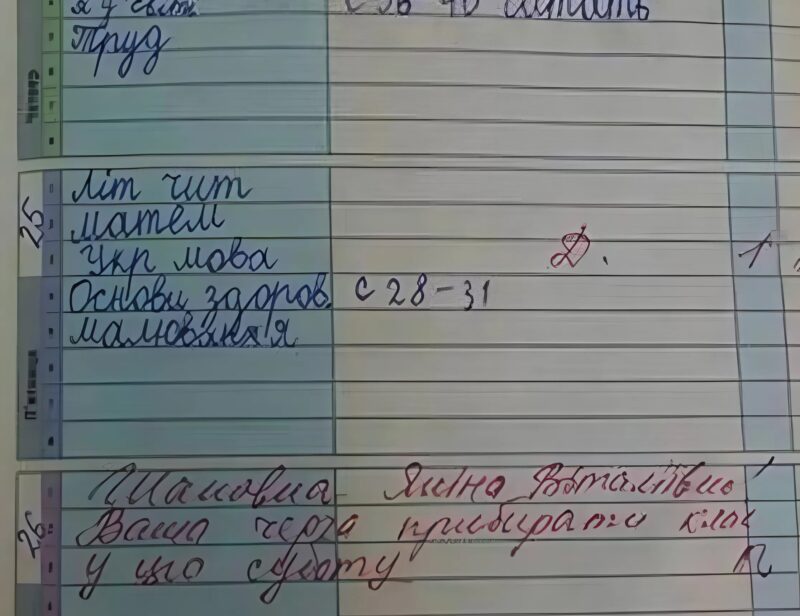 я у світі с 36 40 читать
Труд
25
Літ чит
матем
Укр мова Д. 1
Основи здоров. с 28-31
малювання
П'ятниця
26
Шановна Яніна Віталіївно!
Ваша черга прибирати клас
у цю суботу